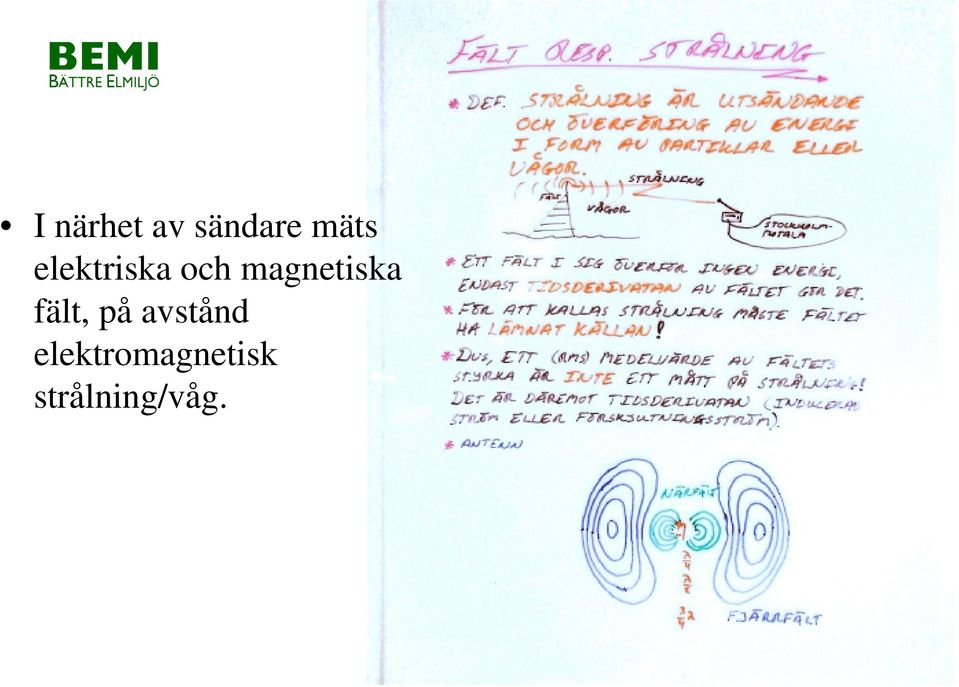 BEMI
BÄTTRE ELMILJÖ
• I närhet av sändare mäts
elektriska och magnetiska
fält, på avstånd
elektromagnetisk
strålning/våg.
FÄLT RESP. STRÅLNING
* DEF. STRÅLNING ÄR UTSÄNDANDE
OCH ÖVERFÖRING AV ENERGI
I FORM AV PARTIKLAR ELLER
VÅGOR.
STRÅLNING
FÄLT
VÅGOR
STOCKHOLM-
MOTALA
* ETT FÄLT I SIG ÖVERFÖR INGEN ENERGI,
ENDAST TIDSDERIVATAN AV FÄLTET GÖR DET.
* FÖR ATT KALLAS STRÅLNING MÅSTE FÄLTET
HA LÄMNAT KÄLLAN!
* DVS, ETT (RMS) MEDELVÄRDE AV FÄLTETS
STYRKA ÄR INTE ETT MÅTT PÅ STRÅLNING!
DET ÄR DÄREMOT TIDSDERIVATAN (INDUCERAD
STRÖM ELLER FÖRSKJUTNINGSSTRÖM).
* ANTENN
NÄRFÄLT
λ/4
λ/2
3/4 λ
FJÄRRFÄLT